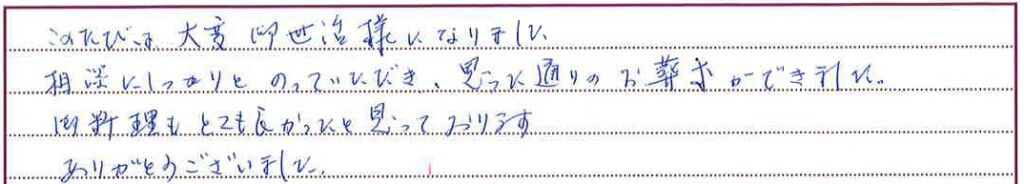 このたびは 大変 御世話様になりました
相談にしっかりと のっていただき、思った通りの お葬式ができました。
御料理も とても良かったと思っております
ありがとうございました。